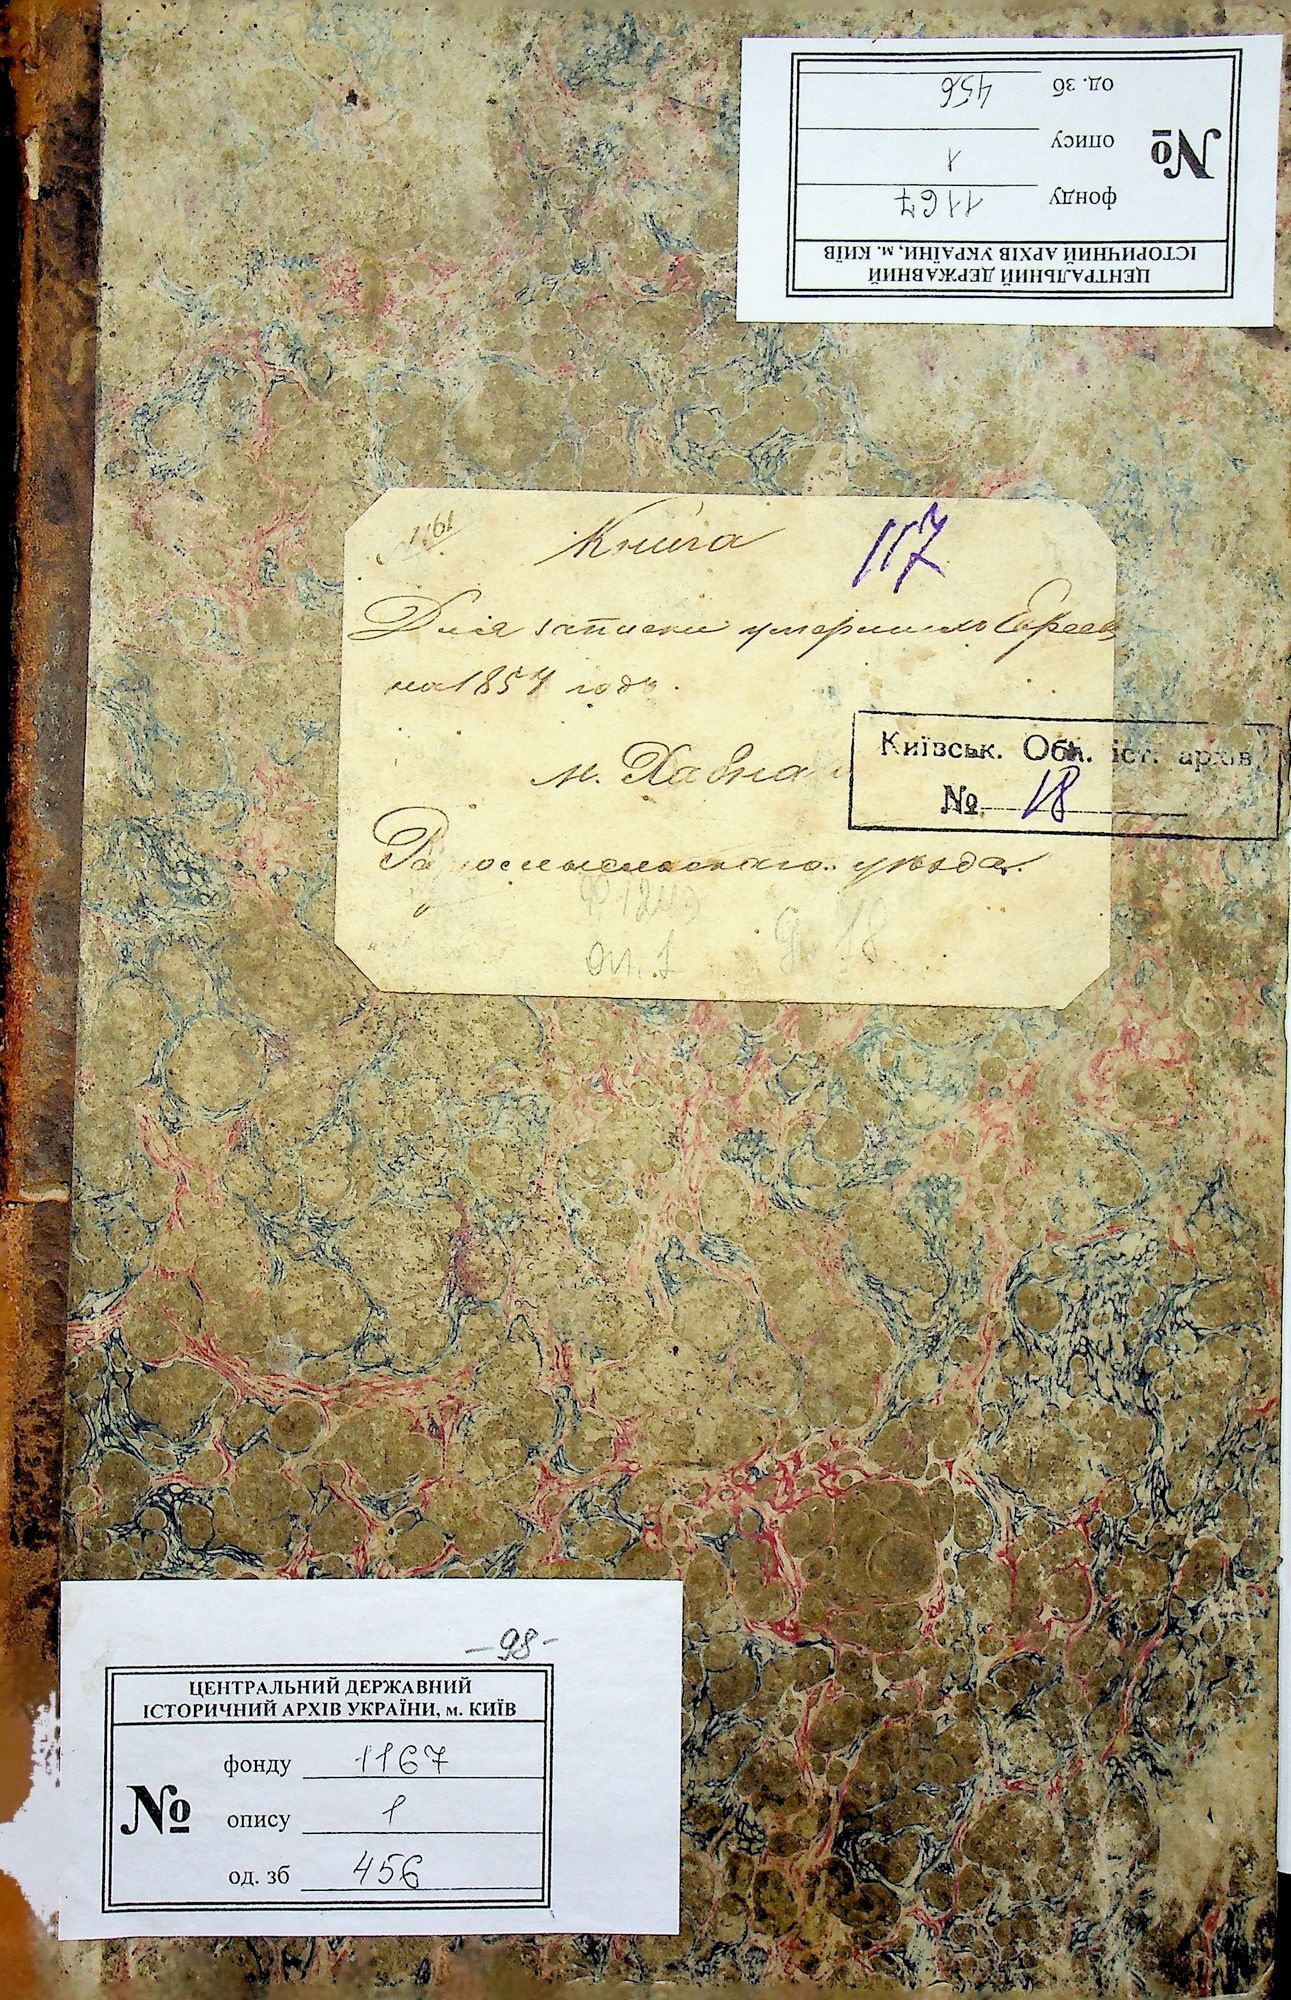 ЦЕНТРАЛЬНИЙ ДЕРЖАВНИЙ
ІСТОРИЧНИЙ АРХІВ УКРАЇНИ, м. КИЇВ
№
фонду 1167
опису 1
од. зб 456
Книга
117
Для записки умершихъ Евреевъ
на 1854 годъ.
м. Хабна
Київськ. Обл. іст. архів
№ 18
Радомысльскаго уѣзда.
оп. 1
д. 18
-98-
ЦЕНТРАЛЬНИЙ ДЕРЖАВНИЙ
ІСТОРИЧНИЙ АРХІВ УКРАЇНИ, м. КИЇВ
№
фонду 1167
опису 1
од. зб 456